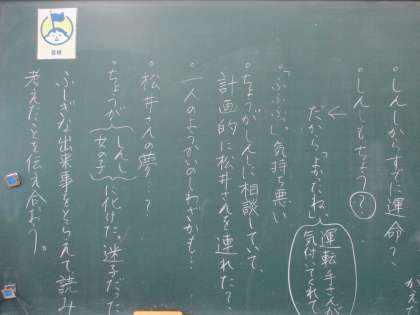 がえ
・しんしからすでに運命?
・しんしもちょう?
だから「よかったね」
運転手さんが
気付いてくれて
・「ふふふ」気持ち悪い
・ちょうがしんしに相談していて、
計画的に松井さんを連れた?
・一人のようかいのしわざかも…
・松井さんの夢…?
・ちょうが
しんし
女の子
に化けた、迷子だった
ふしぎな出来事をとらえて、読み
考えたことを伝え合おう。